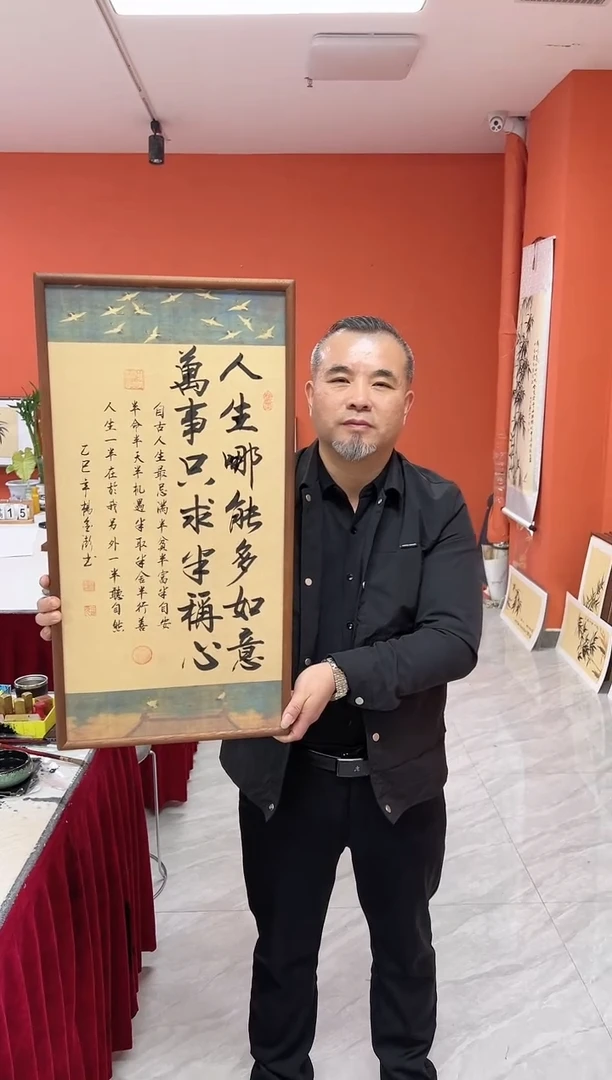 人生哪能多如意
萬事只求半稱心
自古人生最忌滿半貧半富半自安
半命半天半机遇半取半舍半行善
人生一半在於我另外一半聽自然
乙巳年楊金澎書
15